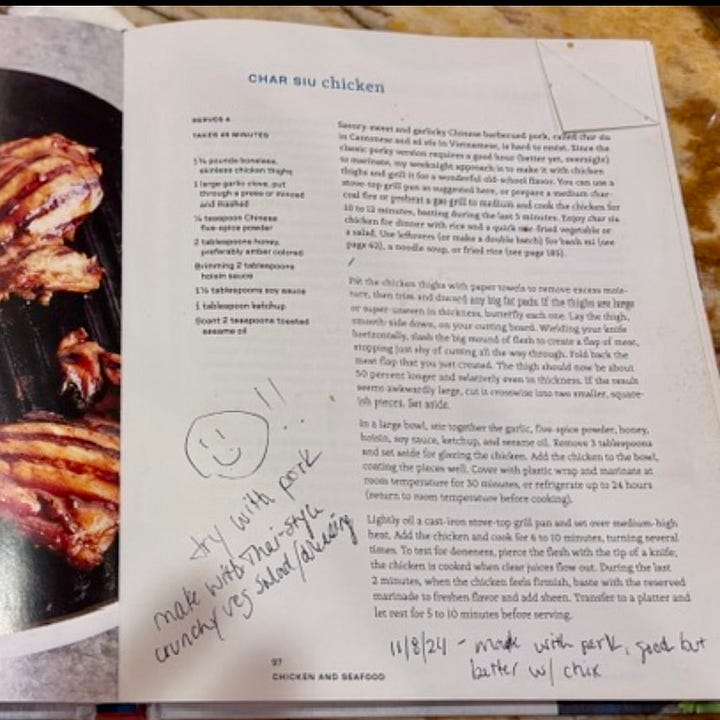 CHAR SIU chicken
SERVES 4
TAKES 45 MINUTES
1¾ pounds boneless,
skinless chicken thighs
1 large garlic clove, put
through a press or minced
and mashed
¼ teaspoon Chinese
five-spice powder
2 tablespoons honey,
preferably amber colored
Brimming 2 tablespoons
hoisin sauce
1½ tablespoons soy sauce
1 tablespoon ketchup
Scant 2 teaspoons toasted
sesame oil
Savory-sweet and garlicky Chinese barbecued pork, called char siu
in Cantonese and xá xíu in Vietnamese, is hard to resist. Since the
classic porky version requires a good hour (better yet, overnight)
to marinate, my weeknight approach is to make it with chicken
thighs and grill it for a wonderful old-school flavor. You can use a
stove-top grill pan as suggested here, or prepare a medium char-
coal fire or preheat a gas grill to medium and cook the chicken for
10 to 12 minutes, basting during the last 3 minutes. Enjoy char siu
chicken for dinner with rice and a quick stir-fried vegetable or
a salad. Use leftovers (or make a double batch) for banh mi (see
page 62), a noodle soup, or fried rice (see page 185).
Pat the chicken thighs with paper towels to remove excess mois-
ture, then trim and discard any big fat pads. If the thighs are large
or super-uneven in thickness, butterfly each one. Lay the thigh,
smooth side down, on your cutting board. Wielding your knife
horizontally, slash the big mound of flesh to create a flap of meat,
stopping just shy of cutting all the way through. Fold back the
meat flap that you just created. The thigh should now be about
50 percent longer and relatively even in thickness. If the result
seems awkwardly large, cut it crosswise into two smaller, square-
ish pieces. Set aside.
In a large bowl, stir together the garlic, five-spice powder, honey,
hoisin, soy sauce, ketchup, and sesame oil. Remove 3 tablespoons
and set aside for glazing the chicken. Add the chicken to the bowl,
coating the pieces well. Cover with plastic wrap and marinate at
room temperature for 30 minutes, or refrigerate up to 24 hours
(return to room temperature before cooking).
Lightly oil a cast-iron stove-top grill pan and set over medium-high
heat. Add the chicken and cook for 6 to 10 minutes, turning several
times. To test for doneness, pierce the flesh with the tip of a knife;
the chicken is cooked when clear juices flow out. During the last
2 minutes, when the chicken feels firmish, baste with the reserved
marinade to freshen flavor and add sheen. Transfer to a platter and
let rest for 5 to 10 minutes before serving.
!!
try with pork
make with Thai-style
crunchy veg salad/dressing
11/8/24 - made with pork, good but
better w/ chix
97
CHICKEN AND SEAFOOD